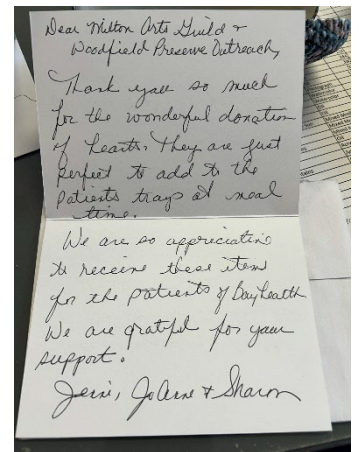 Dear Milton Arts Guild &
Woodfield Preserve Outreach,
Thank you so much
for the wonderful donation
of hearts. They are just
perfect to add to the
patients trays at meal
time.
We are so appreciating
to receive these items
for the patients of Bayhealth
We are grateful for your
support.
Jerri, JoAnne & Sharon